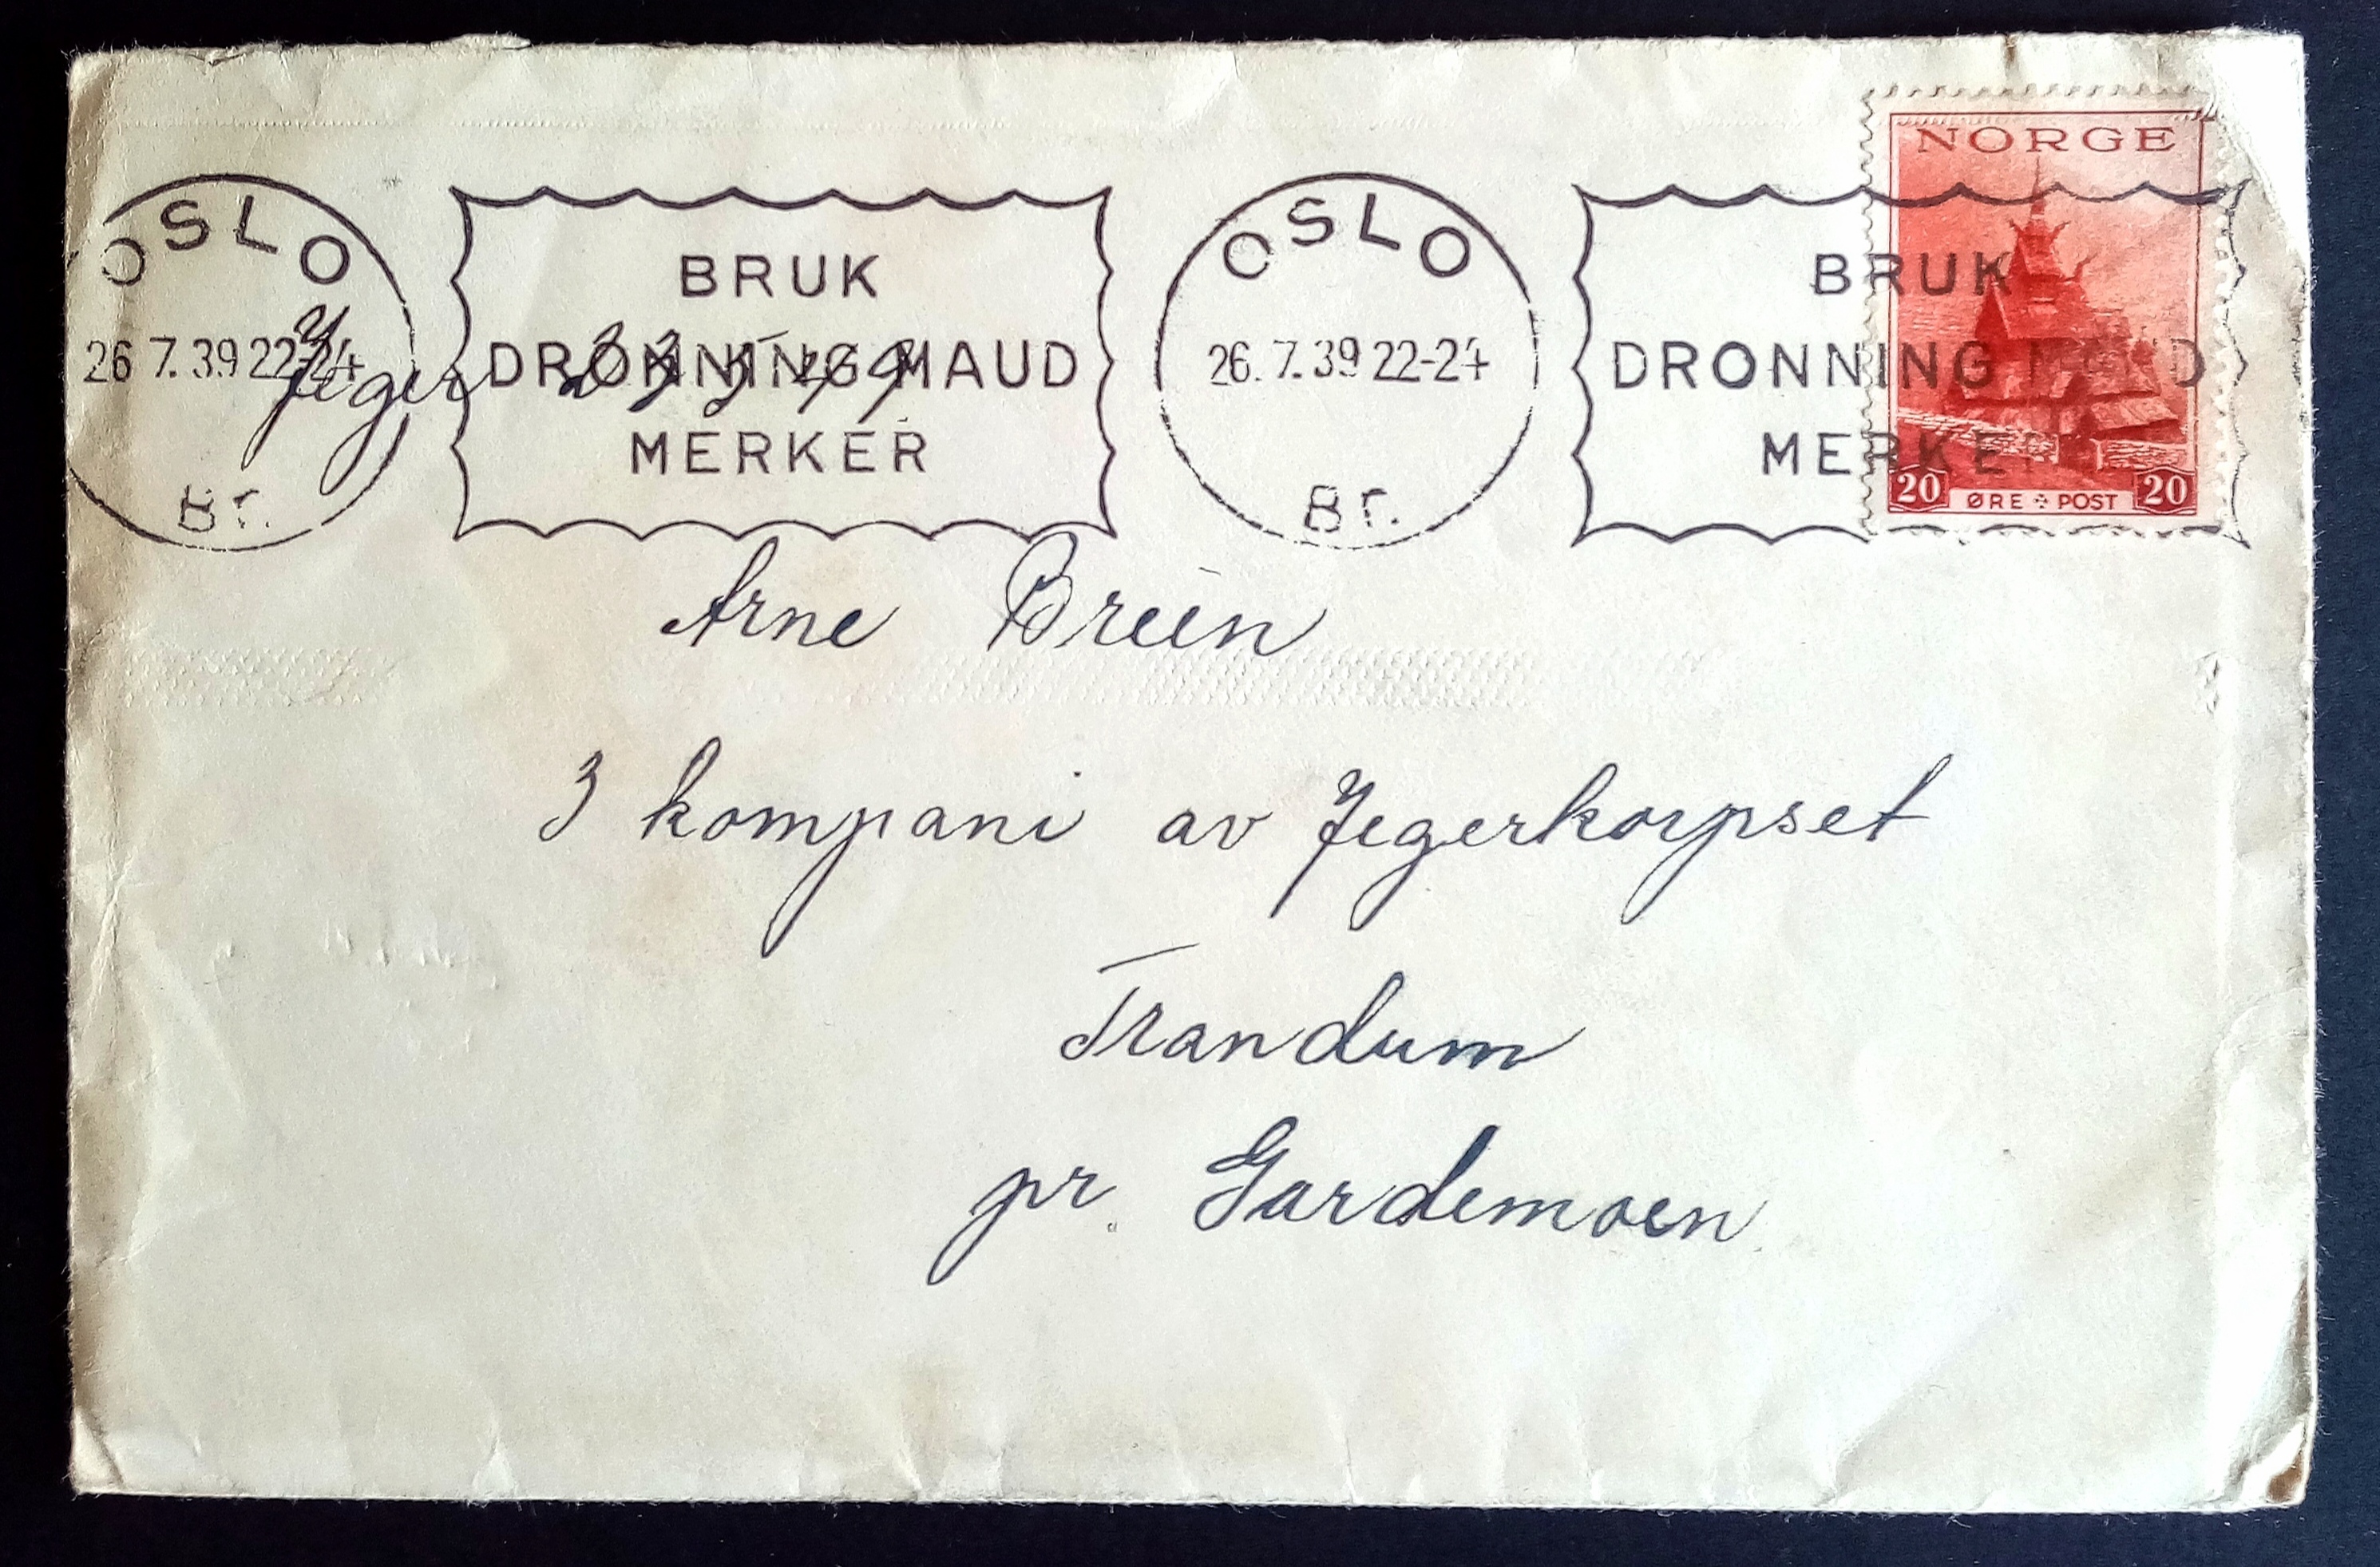 NORGE
OSLO
26 7.39 22-24
Br.
BRUK
DRONNING MAUD
MERKER
OSLO
26.7.39 22-24
Br.
BRUK
DRONNING MAUD
MERKER
20 ØRE POST 20
Jeger
Arne Breien
3 kompani av Jegerkorpset
Trandum
pr. Gardemoen